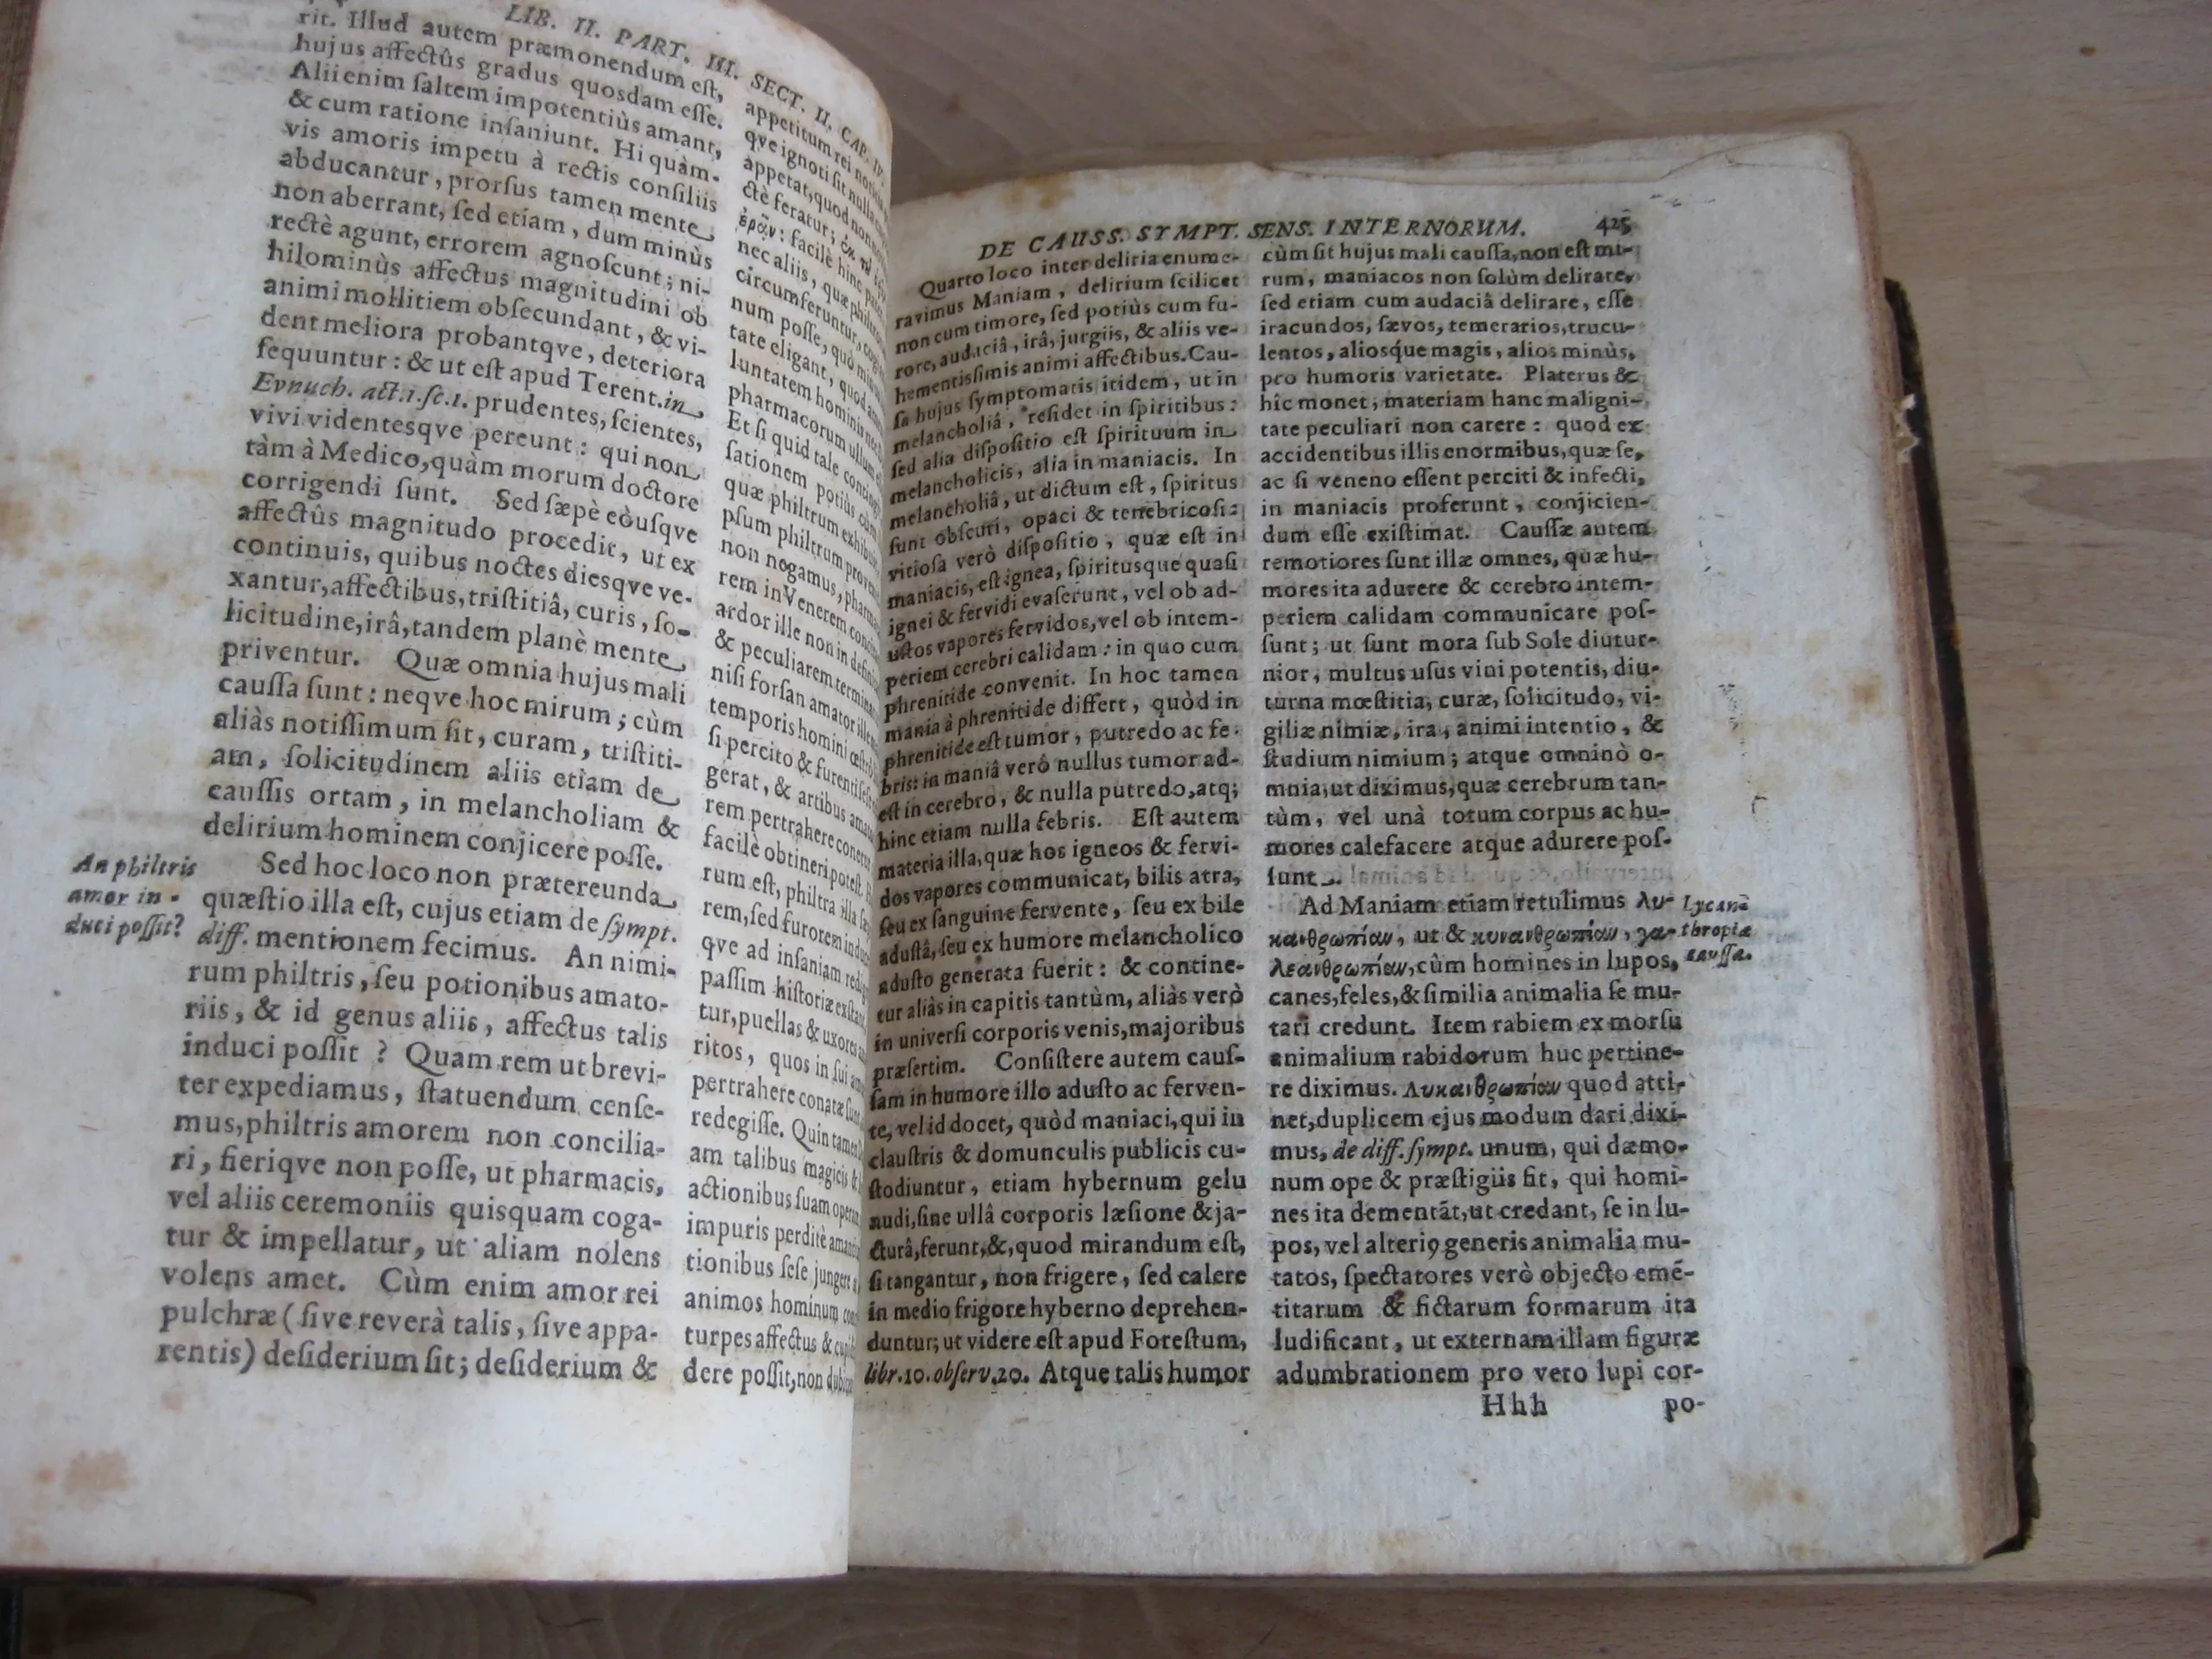 LIB. II. PART. III. SECT. II. CAP. IV.
rit. Illud autem præmonendum eſt,
hujus affectûs gradus quosdam eſſe.
Alii enim ſaltem impotentiùs amant,
& cum ratione inſaniunt. Hi quàm-
vis amoris impetu à rectis conſiliis
abducantur, prorſus tamen mente
non aberrant, ſed etiam, dum minùs
rectè agunt, errorem agnoſcunt; ni-
hilominùs affectus magnitudini ob
animi mollitiem obſecundant, & vi-
dent meliora probantqve, deteriora
ſequuntur: & ut eſt apud Terent. in
Evnuch. act. 1. ſc. 1. prudentes, ſcientes,
vivi videntesqve pereunt: qui non
tàm à Medico, quàm morum doctore
corrigendi ſunt. Sed ſæpè eòuſqve
affectûs magnitudo procedit, ut ex
continuis, quibus noctes diesqve ve-
xantur, affectibus, triſtitiâ, curis, ſo-
licitudine, irâ, tandem planè mente
priventur. Quæ omnia hujus mali
cauſſa ſunt: neqve hoc mirum; cùm
aliàs notiſſimum ſit, curam, triſtiti-
am, ſolicitudinem aliis etiam de
cauſſis ortam, in melancholiam &
delirium hominem conjicere poſſe.
An philtris
amor in-
duci poſſit?
Sed hoc loco non prætereunda
quæſtio illa eſt, cujus etiam de ſympt.
diff. mentionem fecimus. An nimi-
rum philtris, ſeu potionibus amato-
riis, & id genus aliis, affectus talis
induci poſſit? Quam rem ut brevi-
ter expediamus, ſtatuendum cenſe-
mus, philtris amorem non concilia-
ri, fieriqve non poſſe, ut pharmacis,
vel aliis ceremoniis quisquam coga-
tur & impellatur, ut aliam nolens
volens amet. Cùm enim amor rei
pulchræ (ſive reverà talis, ſive appa-
rentis) deſiderium ſit; deſiderium &
appetitum rei
qve ignoti ſit nulla
appetat, quod non
ctè feratur;
ἐρᾷν: facilè hinc
nec aliis, quæ
circumferuntur,
num poſſe, quò
tate eligant, quod
luntatem hominis
pharmacorum
Et ſi quid tale
ſationem potiùs
quæ philtrum
pſum philtrum
non negamus,
rem in Venerem
ardor ille non in
& peculiarem
niſi forſan amator
temporis homini
ſi percito & furenti
gerat, & artibus
rem pertrahere
facilè obtineri poteſt.
rum eſt, philtra illa
rem, ſed furorem
qve ad inſaniam
paſſim hiſtoriæ
tur, puellas & uxores
ritos, quos in ſui
pertrahere conatæ
redegiſſe. Quin
am talibus magicis
actionibus ſuam
impuris perditè
tionibus ſeſe jungere
animos hominum
turpes affectus &
dere poſſit, non
DE CAUSS. SYMPT. SENS. INTERNORUM. 425
Quarto loco inter deliria enume-
ravimus Maniam, delirium ſcilicet
non cum timore, ſed potiùs cum fu-
rore, audaciâ, irâ, jurgiis, & aliis ve-
hementiſſimis animi affectibus. Cau-
ſa hujus ſymptomatis itidem, ut in
melancholiâ, reſidet in ſpiritibus:
ſed alia diſpoſitio eſt ſpirituum in
melancholicis, alia in maniacis. In
melancholiâ, ut dictum eſt, ſpiritus
ſunt obſcuri, opaci & tenebricoſi:
vitioſa verò diſpoſitio, quæ eſt in
maniacis, eſt ignea, ſpiritusque quaſi
ignei & fervidi evaſerunt, vel ob ad-
uſtos vapores fervidos, vel ob intem-
periem cerebri calidam: in quo cum
phrenitide convenit. In hoc tamen
mania à phrenitide differt, quòd in
phrenitide eſt tumor, putredo ac fe-
bris: in maniâ verò nullus tumor ad-
eſt in cerebro, & nulla putredo, atq;
hinc etiam nulla febris. Eſt autem
materia illa, quæ hos igneos & fervi-
dos vapores communicat, bilis atra,
ſeu ex ſanguine fervente, ſeu ex bile
aduſtâ, ſeu ex humore melancholico
aduſto generata fuerit: & contine-
tur aliàs in capitis tantùm, aliàs verò
in univerſi corporis venis, majoribus
præſertim. Conſiſtere autem cauſ-
ſam in humore illo aduſto ac ferven-
te, vel id docet, quòd maniaci, qui in
clauſtris & domunculis publicis cu-
ſtodiuntur, etiam hybernum gelu
nudi, ſine ullâ corporis læſione & ja-
cturâ, ferunt, &, quod mirandum eſt,
ſi tangantur, non frigere, ſed calere
in medio frigore hyberno deprehen-
duntur; ut videre eſt apud Foreſtum,
libr. 10. obſerv. 20. Atque talis humor
cùm ſit hujus mali cauſſa, non eſt mi-
rum, maniacos non ſolùm delirare,
ſed etiam cum audaciâ delirare, eſſe
iracundos, ſævos, temerarios, trucu-
lentos, aliosque magis, alios minùs,
pro humoris varietate. Platerus &
hîc monet, materiam hanc maligni-
tate peculiari non carere: quod ex
accidentibus illis enormibus, quæ ſe,
ac ſi veneno eſſent perciti & infecti,
in maniacis proferunt, conjicien-
dum eſſe exiſtimat. Cauſſæ autem
remotiores ſunt illæ omnes, quæ hu-
mores ita adurere & cerebro intem-
periem calidam communicare poſ-
ſunt; ut ſunt mora ſub Sole diutur-
nior, multus uſus vini potentis, diu-
turna mœſtitia, curæ, ſolicitudo, vi-
giliæ nimiæ, ira, animi intentio, &
ſtudium nimium; atque omninò o-
mnia, ut diximus, quæ cerebrum tan-
tùm, vel unà totum corpus ac hu-
mores calefacere atque adurere poſ-
ſunt.
Ad Maniam etiam retulimus λυ-
κανθρωπίαν, ut & κυνανθρωπίαν, γα-
λεανθρωπίαν, cùm homines in lupos,
canes, feles, & ſimilia animalia ſe mu-
tari credunt. Item rabiem ex morſu
animalium rabidorum huc pertine-
re diximus. Λυκανθρωπίαν quod atti-
net, duplicem ejus modum dari dixi-
mus, de diff. ſympt. unum, qui dæmo-
num ope & præſtigiis fit, qui homi-
nes ita dementāt, ut credant, ſe in lu-
pos, vel alteriꝰ generis animalia mu-
tatos, ſpectatores verò objecto emē-
titarum & fictarum formarum ita
ludificant, ut externam illam figuræ
adumbrationem pro vero lupi cor-
Lycan-
thropiæ
cauſſa.
Hhh po-